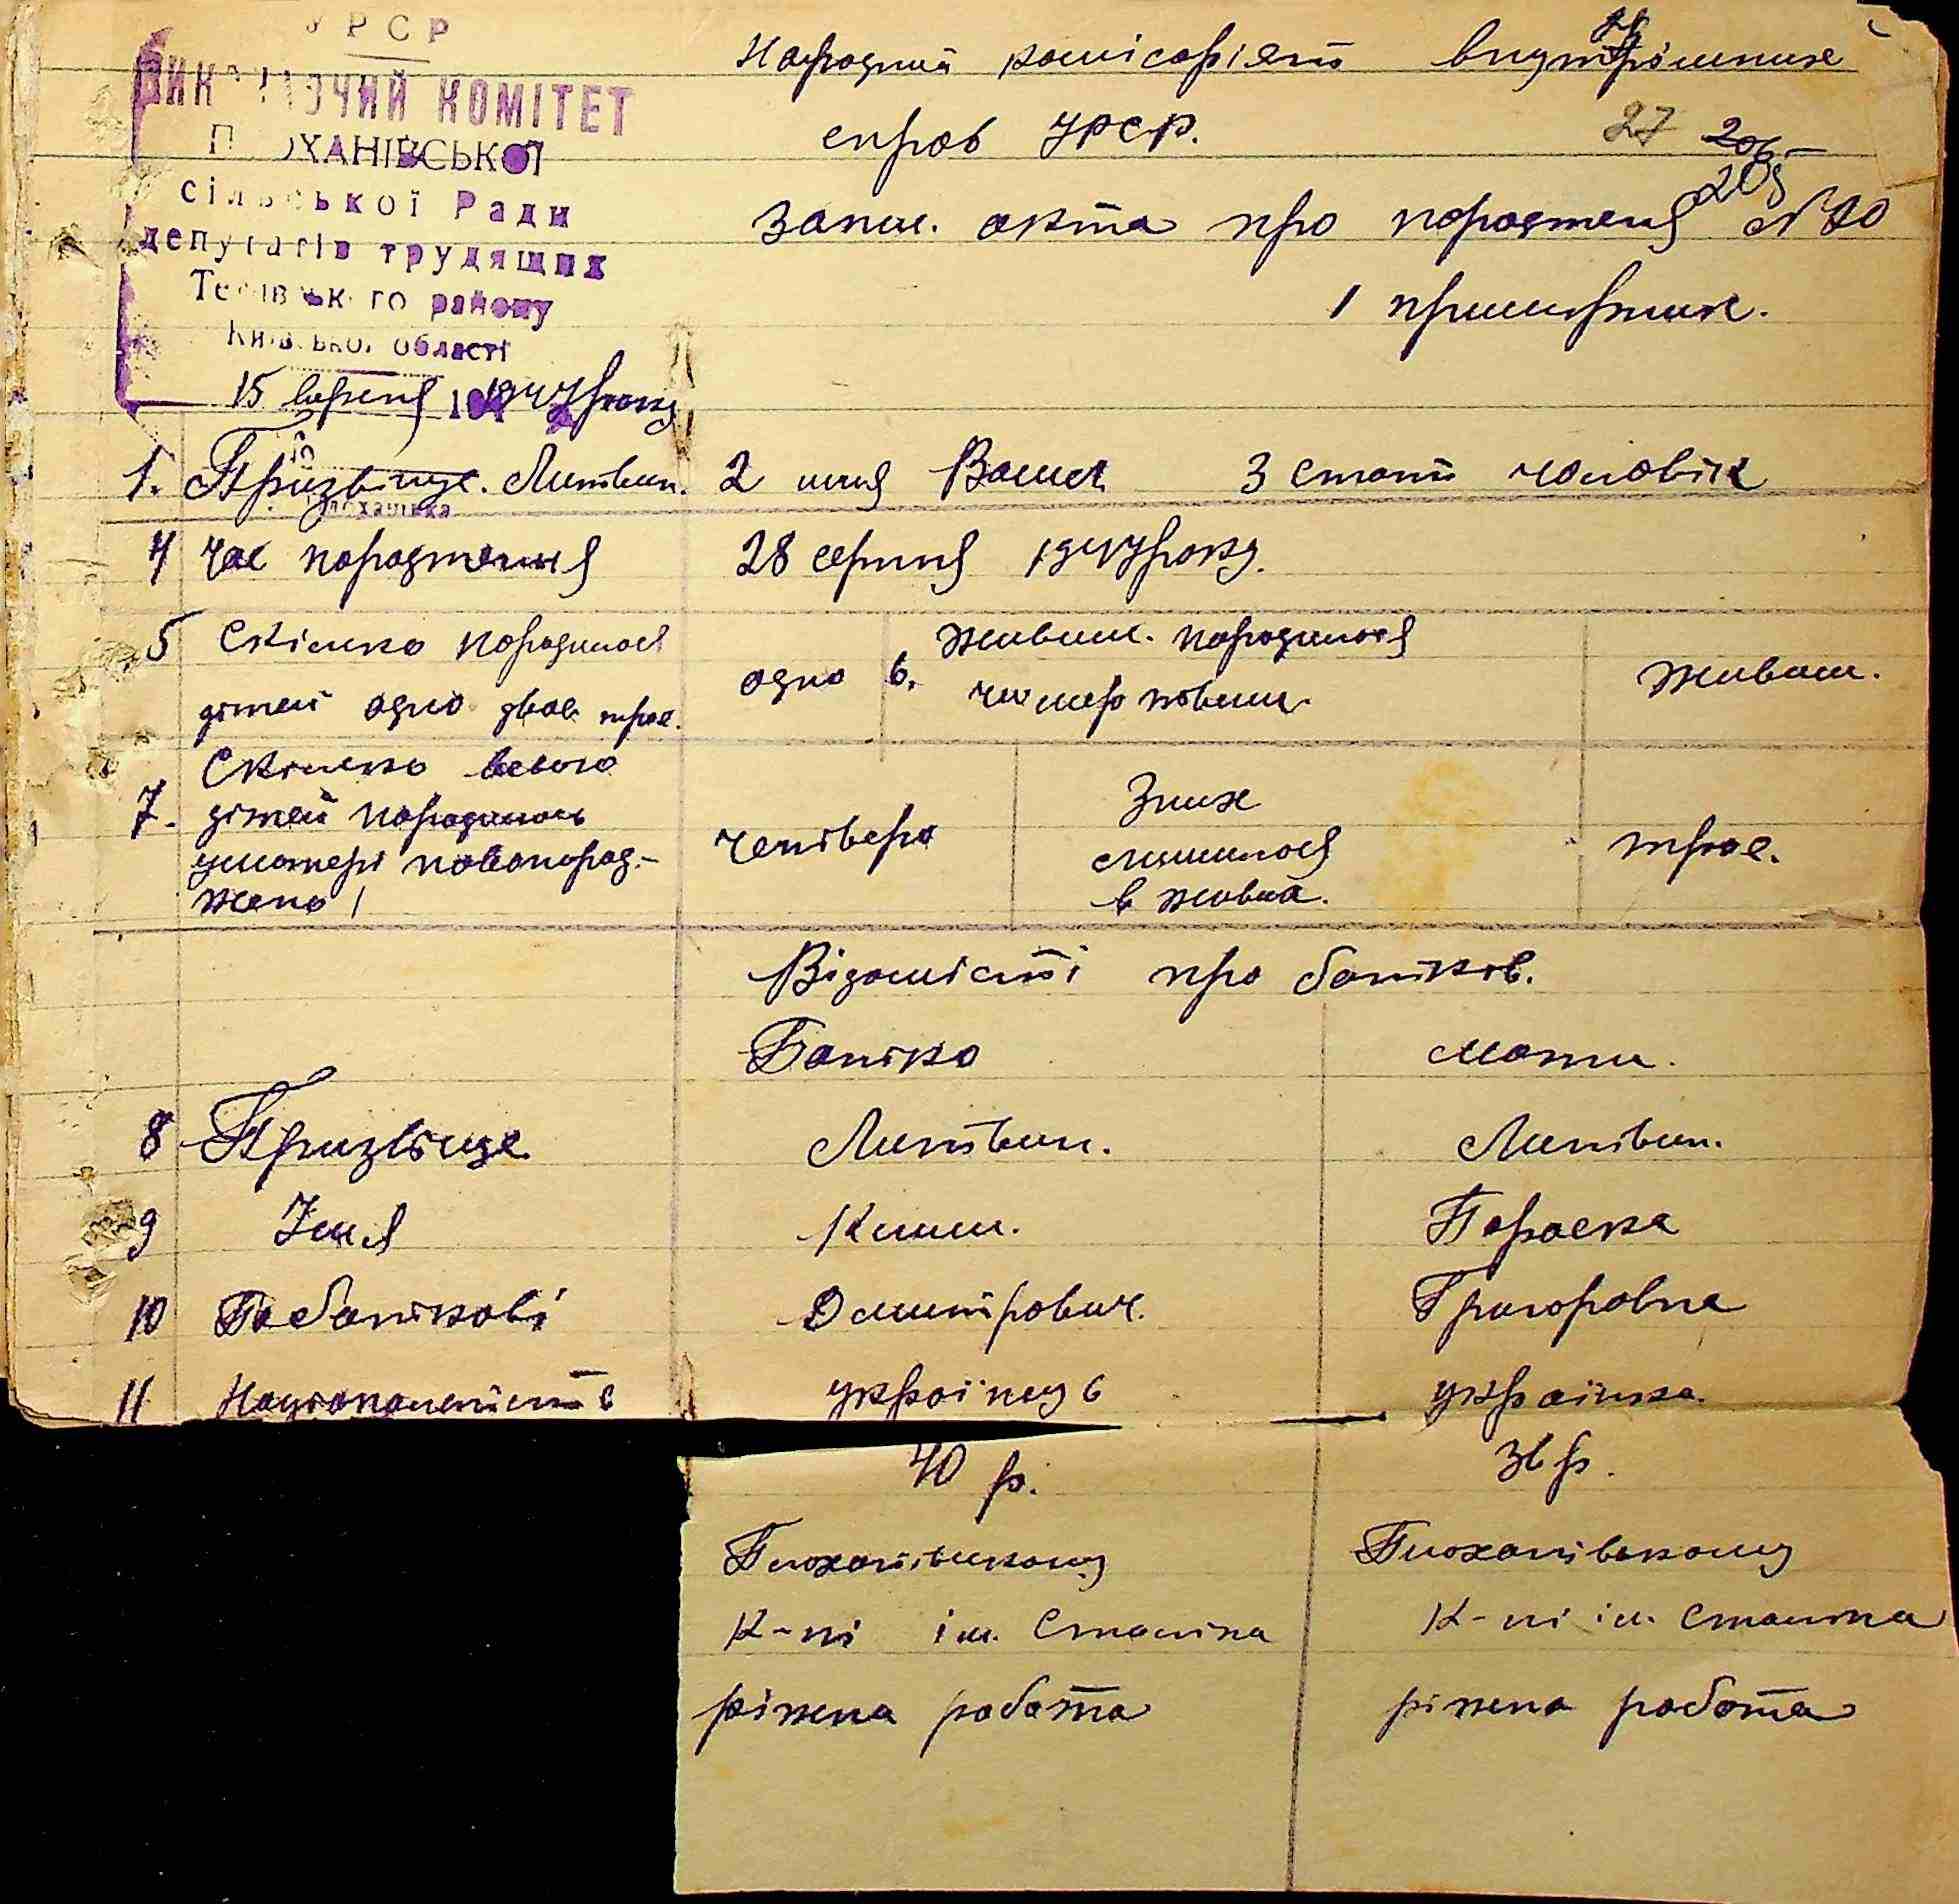 УРСР
ВИКОНАВЧИЙ КОМІТЕТ
ПЛОХАНІВСЬКОЇ
сільської Ради
депутатів трудящих
Тетіївського району
Київської області
15 вересня 1947 року
Народний комісаріят внутрішних
справ УРСР.
27 206
205
запис. акта про народженя №20
1 примірник.
1. Прізвіще. Литвин. 2 имя Василь 3 стать чоловік
4 час народження 28 серпня 1947 року.
5 Скілько народилося
дітей одно двое трое.
одно 6. живим. народилося
чи мертвим. живим.
7. Скілько всього
дітей народилось
у матері новонарод-
жено!
четверо
Зних
лишилося
в живих.
трое.
Відомісті про батьків.
Батько мати.
8 Призвіще. Литвин. Литвин.
9 Імя Параска
10 По батькові Дмитрович. Григоровна
11 Націоналність українець українка.
40 р. 36 р.
Плоханівському Плоханівському
К-пі ім. Сталіна К-пі ім. Сталіна
ріжена работа ріжена работа